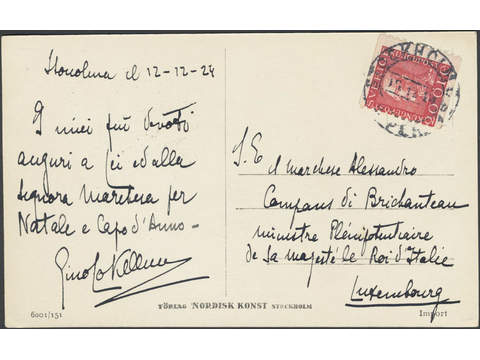 Stoccolma il 12-12-24
I miei più devoti
auguri a Lei ed alla
Signora Marchesa per
Natale e Capo d'Anno-
S. E. il marchese Alessandro
Compans di Brichanteau
ministre Plénipotentiaire
de Sa majesté le Roi d'Italie
Luxembourg
FÖRLAG NORDISK KONST STOCKHOLM
6001/151
Import
SVERIGE